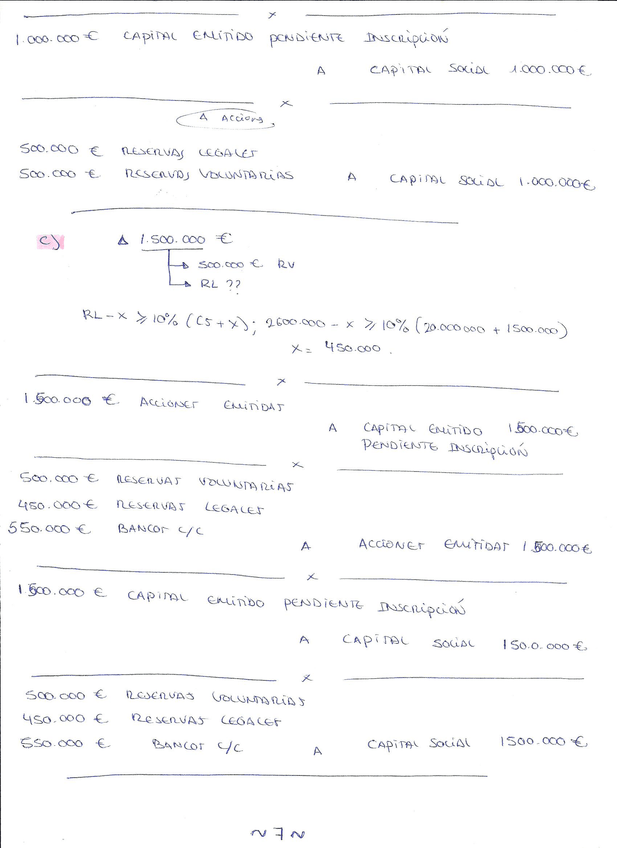 x
1.000.000 € CAPITAL EMITIDO PENDIENTE INSCRIPCIÓN
A CAPITAL SOCIAL 1.000.000 €
x
Δ Acciones
500.000 € RESERVAS LEGALES
500.000 € RESERVAS VOLUNTARIAS A CAPITAL SOCIAL 1.000.000 €
c) Δ 1.500.000 €
500.000 € RV
RL ??
RL - x ≥ 10% (CS + x); 2600.000 - x ≥ 10% (20.000000 + 1500.000)
x = 450.000.
x
1.500.000 € ACCIONES EMITIDAS
A CAPITAL EMITIDO 1500.000 €
PENDIENTE INSCRIPCIÓN
x
500.000 € RESERVAS VOLUNTARIAS
450.000 € RESERVAS LEGALES
550.000 € BANCOS C/C
A ACCIONES EMITIDAS 1500.000 €
x
1.500.000 € CAPITAL EMITIDO PENDIENTE INSCRIPCIÓN
A CAPITAL SOCIAL 150.0.000 €
x
500.000 € RESERVAS VOLUNTARIAS
450.000 € RESERVAS LEGALES
550.000 € BANCOS C/C A CAPITAL SOCIAL 1500.000 €
~ 7 ~